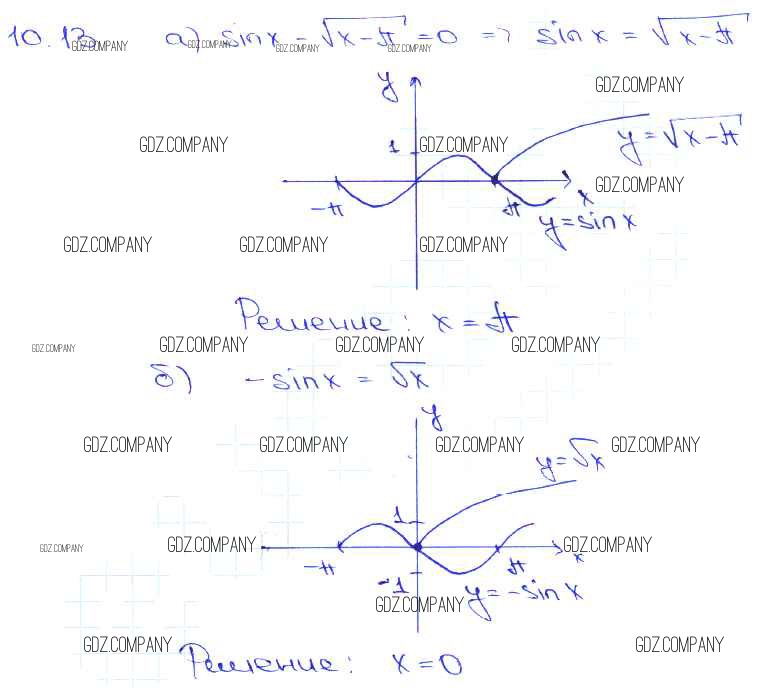 10.13 а) sinx - √(x-π) = 0 => sinx = √(x-π)
GDZ.COMPANY GDZ.COMPANY GDZ.COMPANY GDZ.COMPANY
y
GDZ.COMPANY
y = √(x-π)
GDZ.COMPANY 1 GDZ.COMPANY
GDZ.COMPANY
-π π x
y = sinx
GDZ.COMPANY GDZ.COMPANY GDZ.COMPANY
Решение: x = π
GDZ.COMPANY GDZ.COMPANY GDZ.COMPANY GDZ.COMPANY
б) -sinx = √x
y
GDZ.COMPANY GDZ.COMPANY GDZ.COMPANY GDZ.COMPANY
y = √x
1
GDZ.COMPANY GDZ.COMPANY GDZ.COMPANY
-π π x
-1
y = -sinx
GDZ.COMPANY
GDZ.COMPANY GDZ.COMPANY
Решение: x = 0